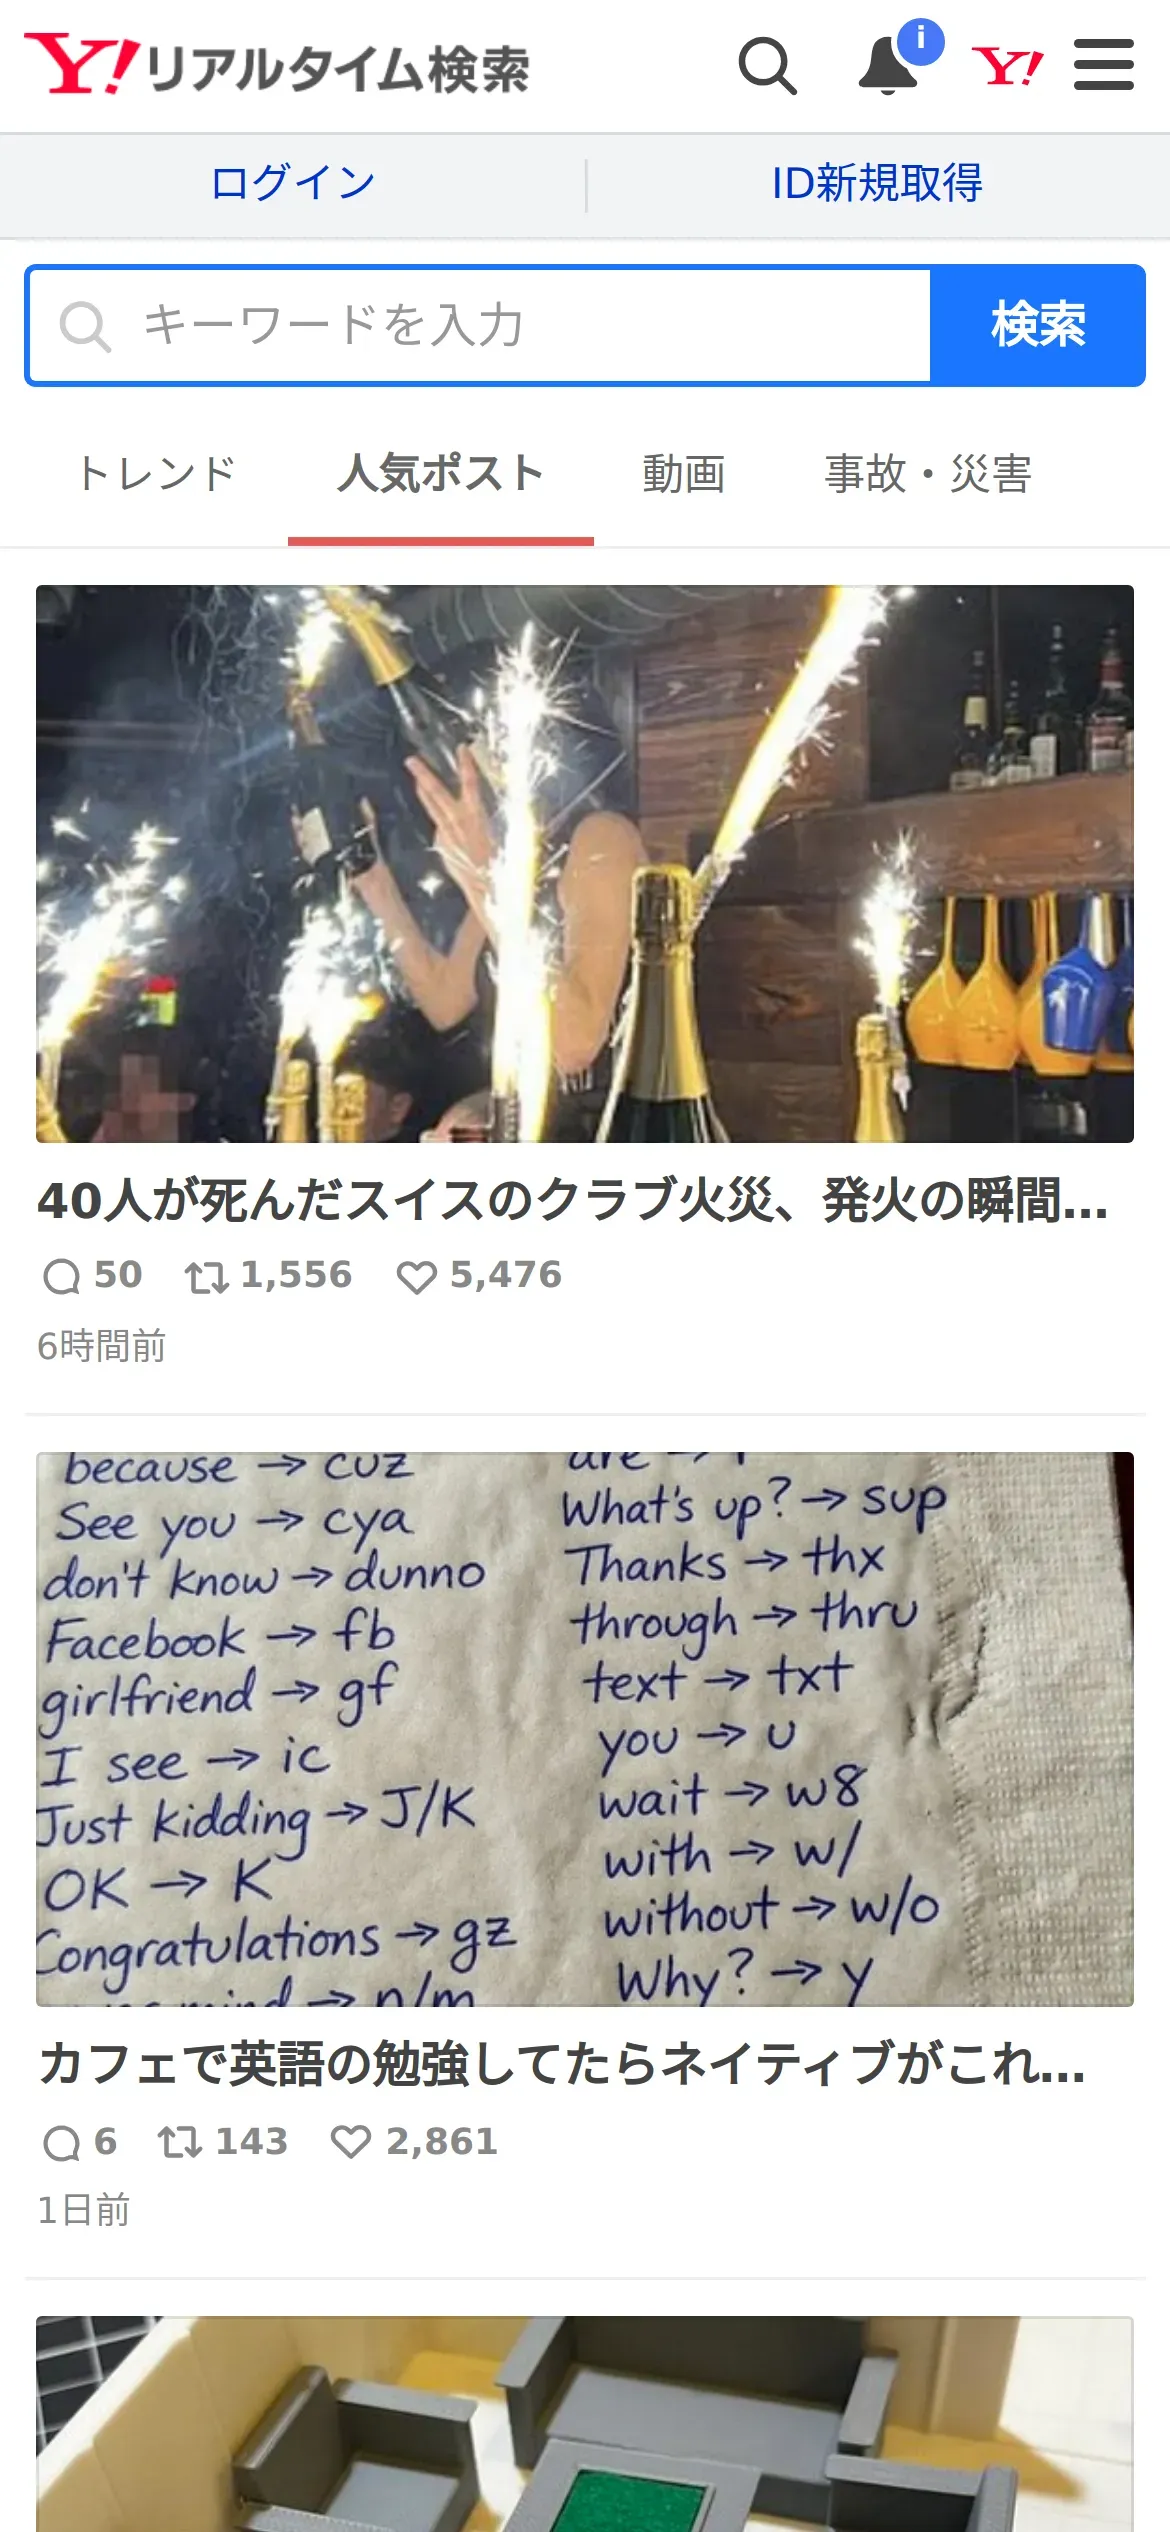 Y!リアルタイム検索
i
Y!
ログイン
ID新規取得
キーワードを入力
検索
トレンド
人気ポスト
動画
事故・災害
40人が死んだスイスのクラブ火災、発火の瞬間...
50
1,556
5,476
6時間前
because → cuz
See you → cya
don't know → dunno
Facebook → fb
girlfriend → gf
I see → ic
Just kidding → J/K
OK → K
Congratulations → gz
mind → n/m
are →
What's up? → sup
Thanks → thx
through → thru
text → txt
you → u
wait → w8
with → w/
without → w/o
Why? → y
カフェで英語の勉強してたらネイティブがこれ...
6
143
2,861
1日前